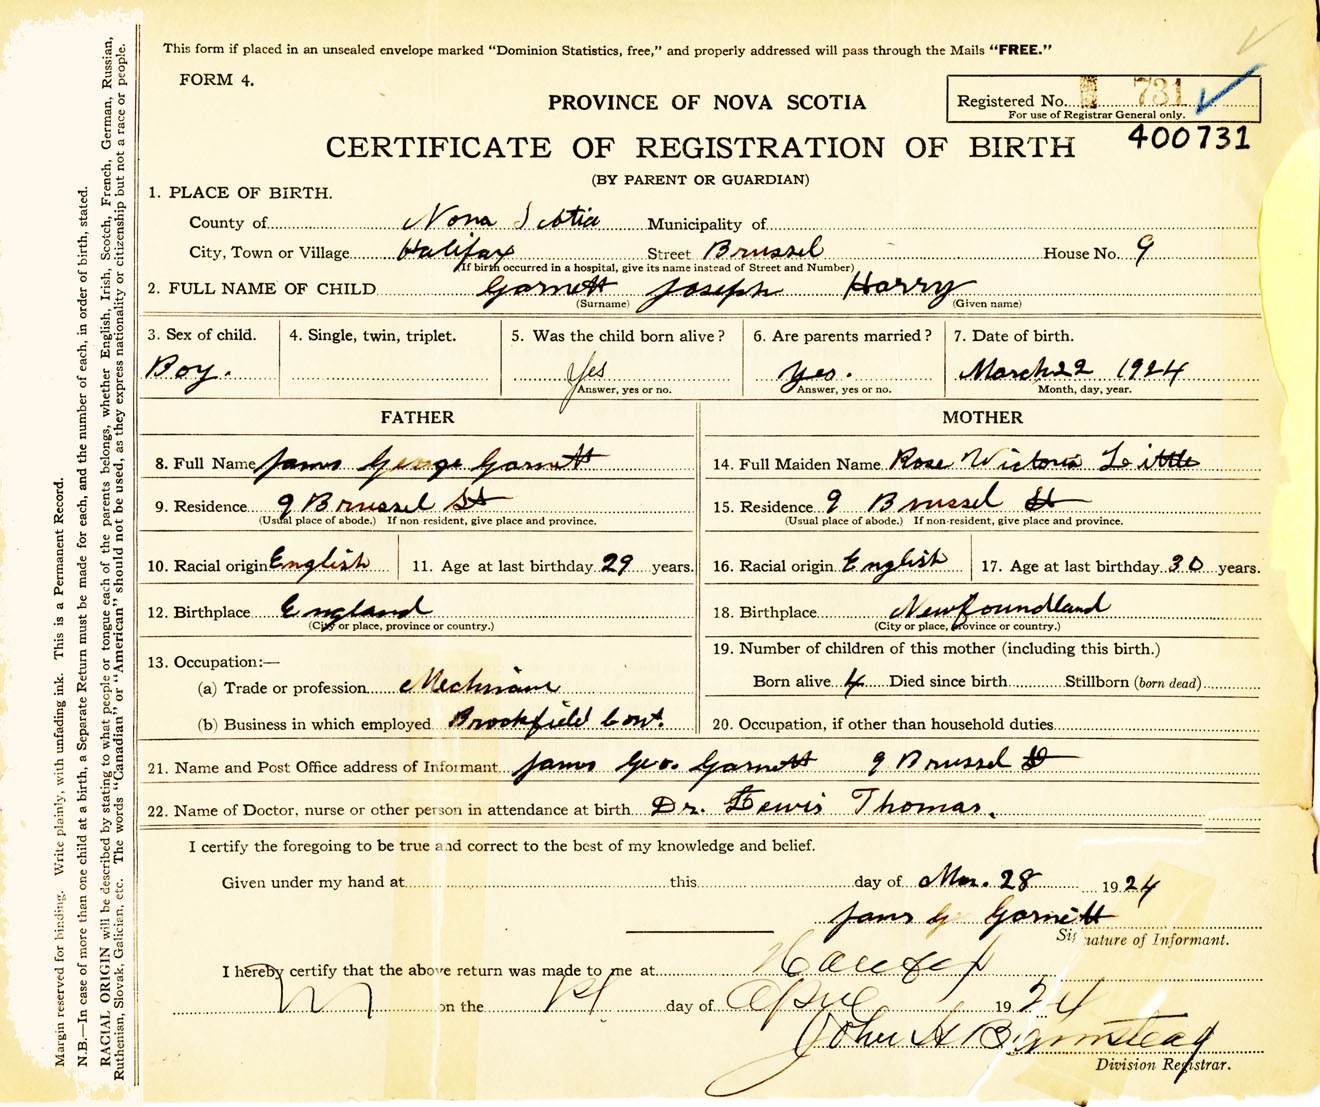 This form if placed in an unsealed envelope marked “Dominion Statistics, free,” and properly addressed will pass through the Mails “FREE.”
FORM 4.
PROVINCE OF NOVA SCOTIA
Registered No. 731
For use of Registrar General only.
400731
CERTIFICATE OF REGISTRATION OF BIRTH
(BY PARENT OR GUARDIAN)
1. PLACE OF BIRTH.
County of Nova Scotia Municipality of
City, Town or Village Halifax Street Brussel House No. 9
(If birth occurred in a hospital, give its name instead of Street and Number)
2. FULL NAME OF CHILD Garnett Joseph Harry
(Surname) (Given name)
3. Sex of child. 4. Single, twin, triplet. 5. Was the child born alive? 6. Are parents married? 7. Date of birth.
Boy. Yes yes. March 22 1924
Answer, yes or no. Answer, yes or no. Month, day, year.
FATHER MOTHER
8. Full Name James George Garnett 14. Full Maiden Name Rose Victoria Little
9. Residence 9 Brussel St 15. Residence 9 Brussel St
(Usual place of abode.) If non-resident, give place and province. (Usual place of abode.) If non-resident, give place and province.
10. Racial origin English 11. Age at last birthday 29 years. 16. Racial origin English 17. Age at last birthday 30 years.
12. Birthplace England 18. Birthplace Newfoundland
(City or place, province or country.) (City or place, province or country.)
13. Occupation:— 19. Number of children of this mother (including this birth.)
(a) Trade or profession Born alive 4 Died since birth Stillborn (born dead)
(b) Business in which employed Brookfield Cont. 20. Occupation, if other than household duties
21. Name and Post Office address of Informant James Geo. Garnett 9 Brussel St
22. Name of Doctor, nurse or other person in attendance at birth Dr. Lewis Thomas.
I certify the foregoing to be true and correct to the best of my knowledge and belief.
Given under my hand at this day of Mar. 28 1924
James G Garnett
Signature of Informant.
I hereby certify that the above return was made to me at Halifax
on the day of April 1924
John A
Division Registrar.
Margin reserved for binding. Write plainly, with unfading ink. This is a Permanent Record.
N.B.—In case of more than one child at a birth, a Separate Return must be made for each, and the number of each, in order of birth, stated.
RACIAL ORIGIN will be described by stating to what people or tongue each of the parents belongs, whether English, Irish, Scotch, French, German, Russian,
Ruthenian, Slovak, Galician, etc. The words “Canadian” or “American” should not be used, as they express nationality or citizenship but not a race or people.